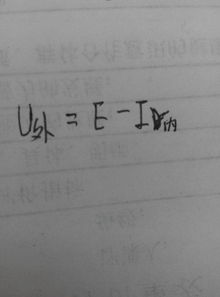 U外 = E - Ir内